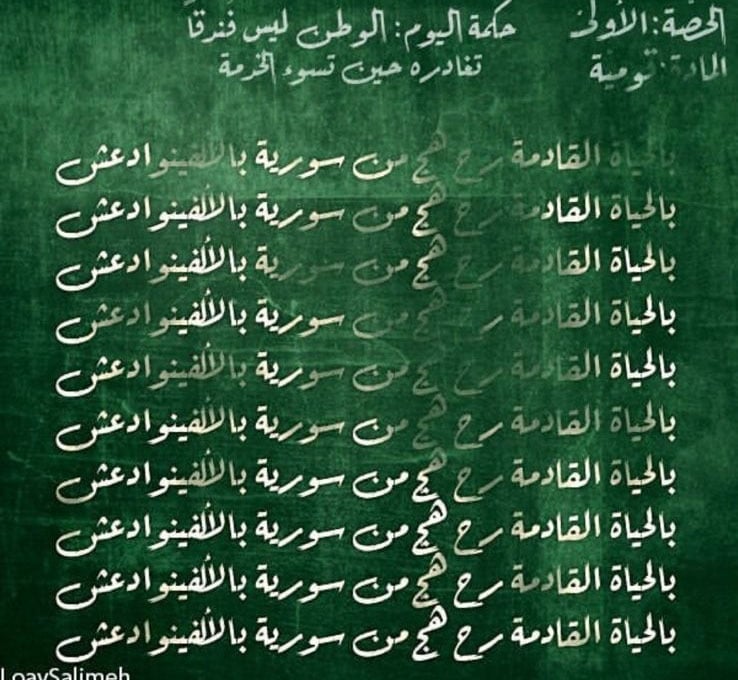 الحصة: الأولى حكمة اليوم: الوطن ليس فندقاً
المادة: قومية تغادره حين تسوء الخدمة
بالحياة القادمة رح هج من سورية بالألفينوادعش
بالحياة القادمة رح هج من سورية بالألفينوادعش
بالحياة القادمة رح هج من سورية بالألفينوادعش
بالحياة القادمة رح هج من سورية بالألفينوادعش
بالحياة القادمة رح هج من سورية بالألفينوادعش
بالحياة القادمة رح هج من سورية بالألفينوادعش
بالحياة القادمة رح هج من سورية بالألفينوادعش
بالحياة القادمة رح هج من سورية بالألفينوادعش
بالحياة القادمة رح هج من سورية بالألفينوادعش
بالحياة القادمة رح هج من سورية بالألفينوادعش
LoaySalimeh